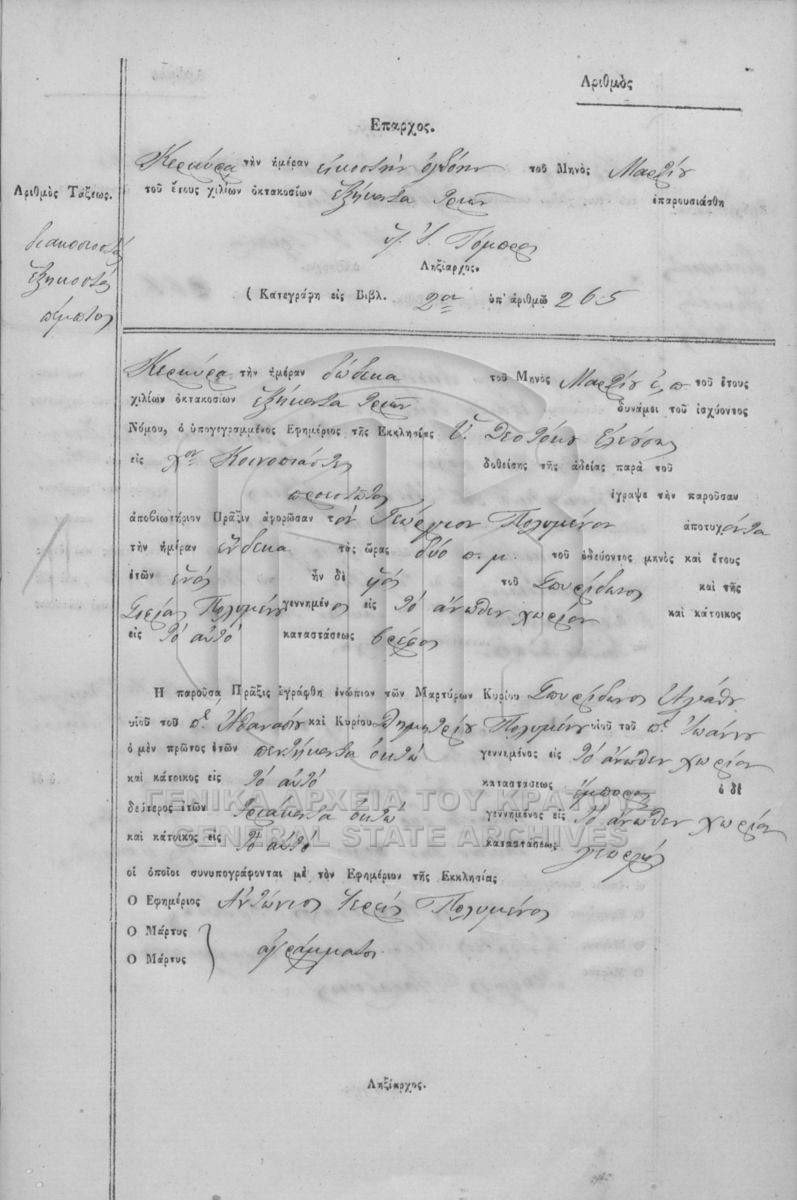 Αριθμὸς
Επαρχος.
Κερκύρα τὴν ἡμέραν εἰκοστὴν ὀγδόην τοῦ Μηνὸς Μαρτίου
τοῦ ἔτους χιλίων ὀκτακοσίων ἑξήκοντα τριῶν ἐπαρουσιάσθη
Ληξίαρχος.
( Κατεγράφη εἰς Βιβλ. 2ον ὑπ' ἀριθμῷ 265
Αριθμὸς Τάξεως.
διακοσιοστὸς
ἑξηκοστὸς
πέμπτος
Κερκύρα τὴν ἡμέραν δώδεκα τοῦ Μηνὸς Μαρτίου ἐ. π. τοῦ ἔτους
χιλίων ὀκτακοσίων ἑξήκοντα τριῶν δυνάμει τοῦ ἰσχύοντος
Νόμου, ὁ ὑπογεγραμμένος Εφημέριος τῆς Εκκλησίας Θεοτόκου
εἰς χον Κοινοπιάστες δοθείσης τῆς ἀδείας παρὰ τοῦ
ἔγραψε τὴν παροῦσαν
ἀποβιωτήριον Πρᾶξιν ἀφορῶσαν τὸν Γεώργιον Πολυμένον ἀποτυχόντα
τὴν ἡμέραν ἕνδεκα τὰς ὥρας δύο π. μ. τοῦ ὁδεύοντος μηνὸς καὶ ἔτους
ἐτῶν ἑνὸς ἦν δὲ υἱὸς τοῦ Σπυρίδωνος καὶ τῆς
Πολυμένου γεννημένος εἰς τὸ ἄνωθεν χωρίον καὶ κάτοικος
εἰς τὸ αὐτὸ καταστάσεως βρέφος
Η παροῦσα Πρᾶξις ἐγράφθη ἐνώπιον τῶν Μαρτύρων Κυρίου Σπυρίδωνος Ἀγάθου
υἱοῦ τοῦ πτ Ἀθανασίου καὶ Κυρίου Δημητρίου Πολυμένου υἱοῦ τοῦ πτ Ἰωάννου
ὁ μὲν πρῶτος ἐτῶν πεντήκοντα ὀκτὼ γεννημένος εἰς τὸ ἄνωθεν χωρίον
καὶ κάτοικος εἰς τὸ αὐτὸ καταστάσεως ἔμπορος ὁ δὲ
δεύτερος ἐτῶν τριάκοντα ὀκτὼ γεννημένος εἰς τὸ ἄνωθεν χωρίον
καὶ κάτοικος εἰς τὸ αὐτὸ καταστάσεως γεωργὸς
οἱ ὁποῖοι συνυπογράφονται μὲ τὸν Εφημέριον τῆς Εκκλησίας
Ο Εφημέριος Ἀντώνιος Ἱερεὺς Πολυμένος
Ο Μάρτυς
Ο Μάρτυς
ἀγράμματοι
Ληξίαρχος.
ΓΕΝΙΚΑ ΑΡΧΕΙΑ ΤΟΥ ΚΡΑΤΟΥΣ
GENERAL STATE ARCHIVES